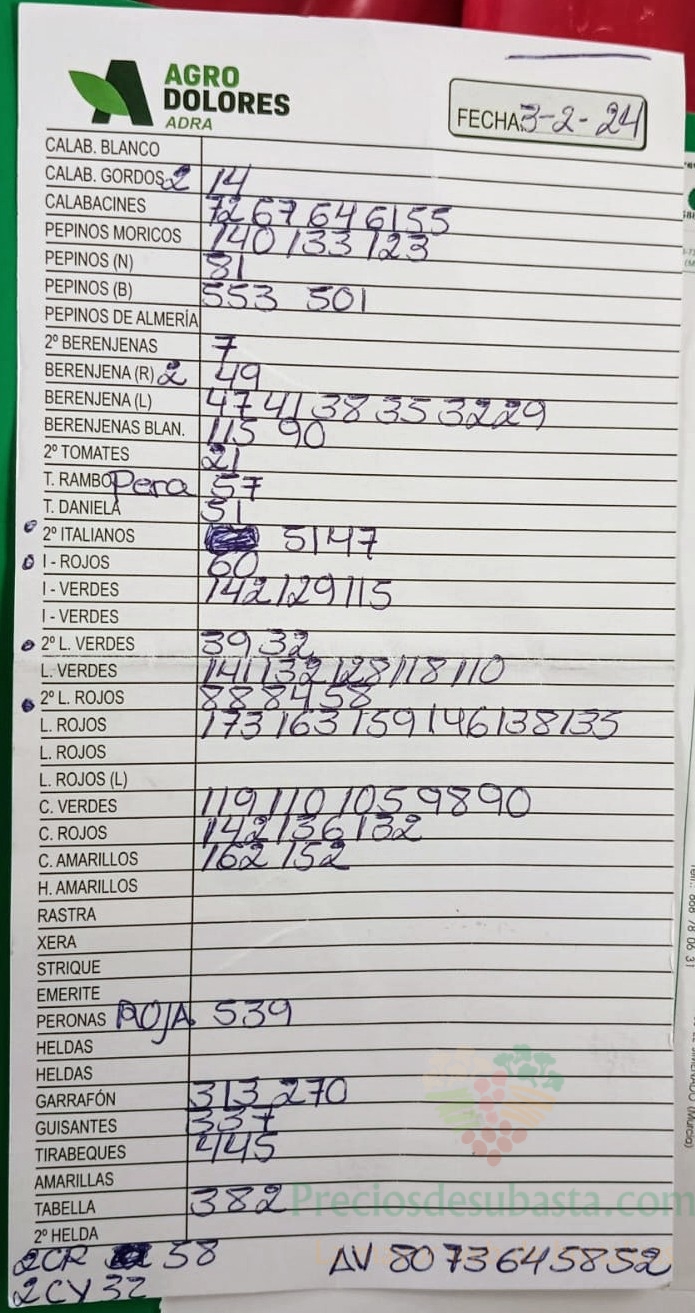 AGRO
DOLORES
ADRA
FECHA: 3-2-24
CALAB. BLANCO
CALAB. GORDOS 2 14
CALABACINES 72 67 64 61 55
PEPINOS MORICOS 140 133 123
PEPINOS (N) 81
PEPINOS (B) 553 501
PEPINOS DE ALMERÍA
2º BERENJENAS 7
BERENJENA (R) 2 49
BERENJENA (L) 47 41 38 35 32 29
BERENJENAS BLAN. 115 90
2º TOMATES 21
T. RAMBO Pera 57
T. DANIELA 51
2º ITALIANOS 51 47
I - ROJOS 60
I - VERDES 142 129 115
I - VERDES
2º L. VERDES 39 32
L. VERDES 141 132 128 118 110
2º L. ROJOS 88 84 58
L. ROJOS 173 163 159 146 138 135
L. ROJOS
L. ROJOS (L)
C. VERDES 119 110 105 98 90
C. ROJOS 142 136 132
C. AMARILLOS 162 152
H. AMARILLOS
RASTRA
XERA
STRIQUE
EMERITE
PERONAS ROJA 539
HELDAS
HELDAS
GARRAFÓN 313 270
GUISANTES 337
TIRABEQUES 445
AMARILLAS
TABELLA 382
Preciosdesubasta.com
2º HELDA
2CR 58 AV 80 73 64 58 52
2CY 32